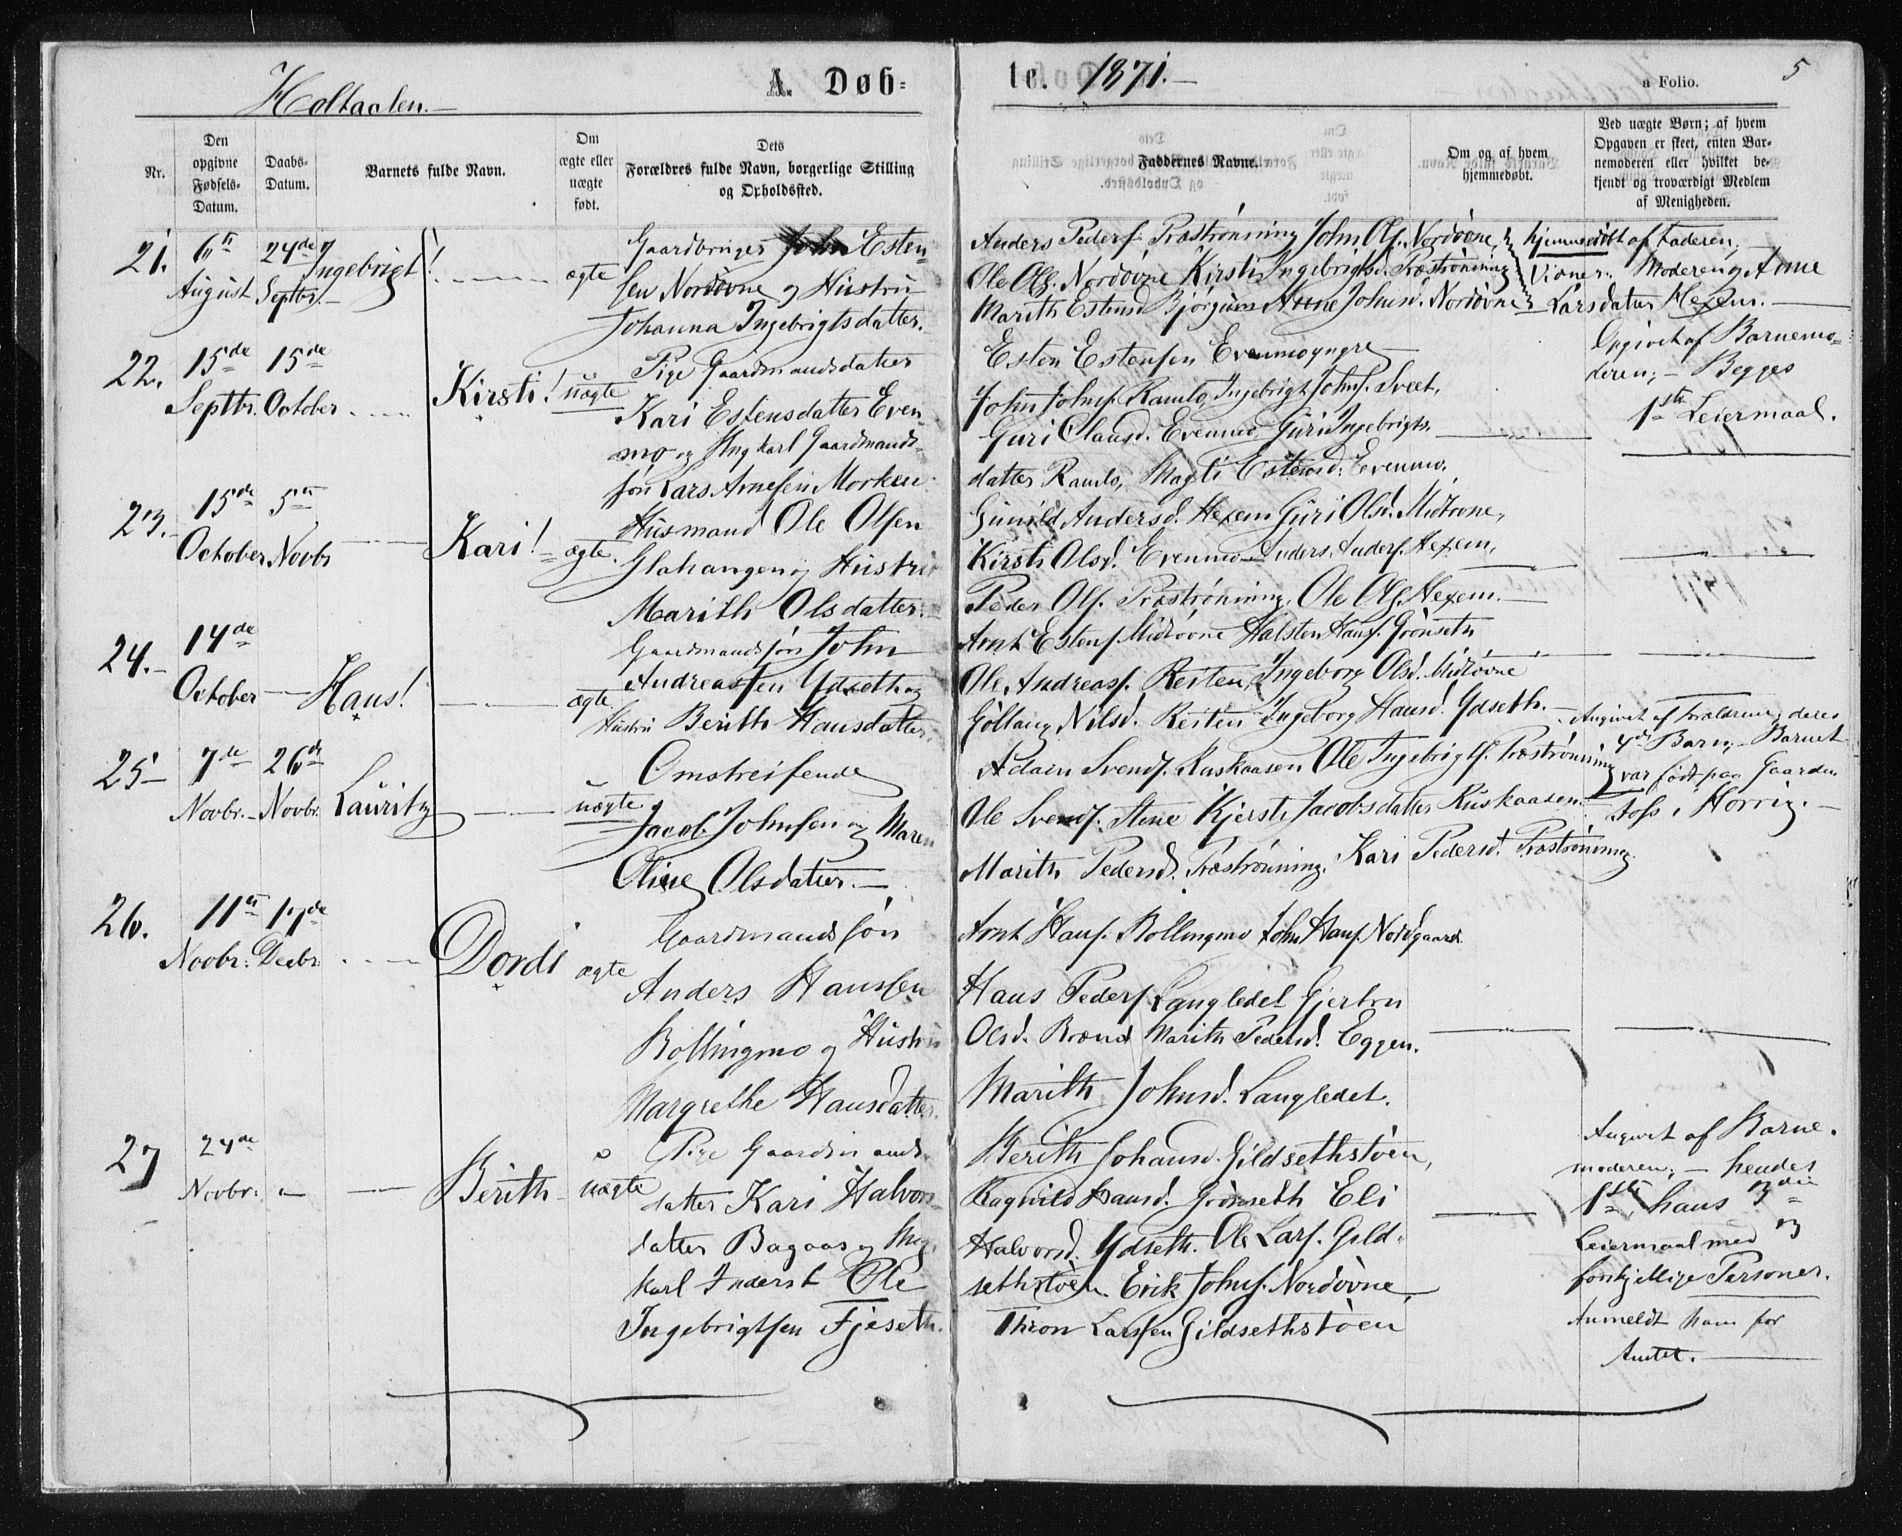 Holtaalen.
A. Døb=
te. 1871.
a Folio. 5
Nr.
Den opgivne Fødsels-Datum.
Daabs-Datum.
Barnets fulde Navn.
Om ægte eller uægte født.
Dets Forældres fulde Navn, borgerlige Stilling og Opholdssted.
Faddernes Navne.
Om og af hvem hjemmedøbt.
Ved uægte Børn; af hvem Opgaven er skeet, enten Barnemoderen eller hvilket bekjendt og troværdigt Medlem af Menigheden.
21. 6te August 24de Septbr. Ingebrigt! ægte
Gaardbruger John Esten-
sen Nordövne og Hustru
Johanna Ingebrigtsdatter.
Anders Peders. Præströnning John Ols. Nordövne,
Ole Ols. Nordövne Kirsti Ingebrigtsd. Præströnning
Marith Estensd. Björgum Anne Johnsd. Nordövne
hjemmedöbt af Faderen;
Vidner: Moderen og Anne
Larsdatter Hexem.
22. 15de Septbr. 15de October Kirsti! uægte
Pige Gaardmandsdatter
Kari Estensdatter Even-
mo og Ungkarl Gaardmands-
sön Lars Arnesen Morken
Esten Estensen Evenmo yngre
John Johns. Ramlo, Ingebrigt Johns. Svect,
Guri Clausd. Evenmo, Guri Ingebrigts-
datter Ramlo, Magli Estensd. Evenmo.
Opgivet af Barnemo-
deren; Begges
1ste Leiermaal.
23. 15de October 5te Novbr Kari! ægte.
Husmand Ole Olsen
Glahaugen og Hustru
Marith Olsdatter.
Gunild Andersd. Hexem Guri Olsd. Midtövne,
Kirsti Olsd. Evenmo Anders Anders. Hexem,
Peder Ols. Præströnning, Ole Ols. Hexem.
24. 14de October Hans! ægte
Gaardmandssön John
Andreassen Ydseth og
Hustru Berith Hansdatter.
Arnt Estens. Midtövne Halsten Hans. Grönseth
Ole Andreas. Reiten, Ingeborg Olsd. Midtövne
Göllaug Nilsd. Reiten Ingeborg Hansd. Ydseth.
25 7de Novbr. 26de Novbr. Lauritz uægte
Omstreifende
Jacob Johnsen og Maren
Oline Olsdatter.
Adam Svends. Ruskaasen Ole Ingebrigts. Præströnning
Ole Svends. Stene Kjersti Jacobsdatter Ruskaasen.
Marith Pedersd. Præströnning. Kari Pedersd. Præströnning.
Angivet af Forældrene, deres
4de Barn; Barnet
var födt paa Gaarden
26. 11te Novbr. 17de Decbr. Dordi ægte
Gaardmandssön
Anders Hanssen
Bollingmo og Hustru
Margrethe Hansdatter.
Arnt Hans. Bollingmo John Hans. Nordgaard.
Hans Peders. Langledet Gjertru
Olsd. Brænd Marith Pedersd. Eggen.
Marith Johnsd. Langledet.
27 24de Novbr. Berith uægte
Pige Gaardmands-
datter Kari Halvors-
datter Bagaas og Ung-
karl Inderst Ole
Ingebrigtsen Fjeseth.
Berith Johansd. Gildsethstöen,
Ragnild Hansd. Grönseth Eli
Halvorsd. Ydseth. Ole Lars. Gild-
sethstöen. Erik Johns. Nordövne,
Thron Larssen Gildsethstöen
Angivet af Barne-
moderen; hendes
1ste, hans 3die
Leiermaal med 3
forskjellige Personer.
Anmeldt ham for
Amtet.